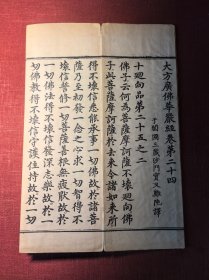 大方廣佛華嚴經卷第二十四
于闐國三藏沙門實叉難陀譯
十迴向品第二十五之二
佛子云何為菩薩摩訶薩不壞迴向佛
子此菩薩摩訶薩於去來今諸如來所
得不壞信悉能承事一切佛故於諸菩
薩乃至初發一念之心求一切智得不
壞信誓修一切菩薩善根無疲厭故於
一切佛法得不壞信發深志樂故於一
切佛教得不壞信守護住持故於一切